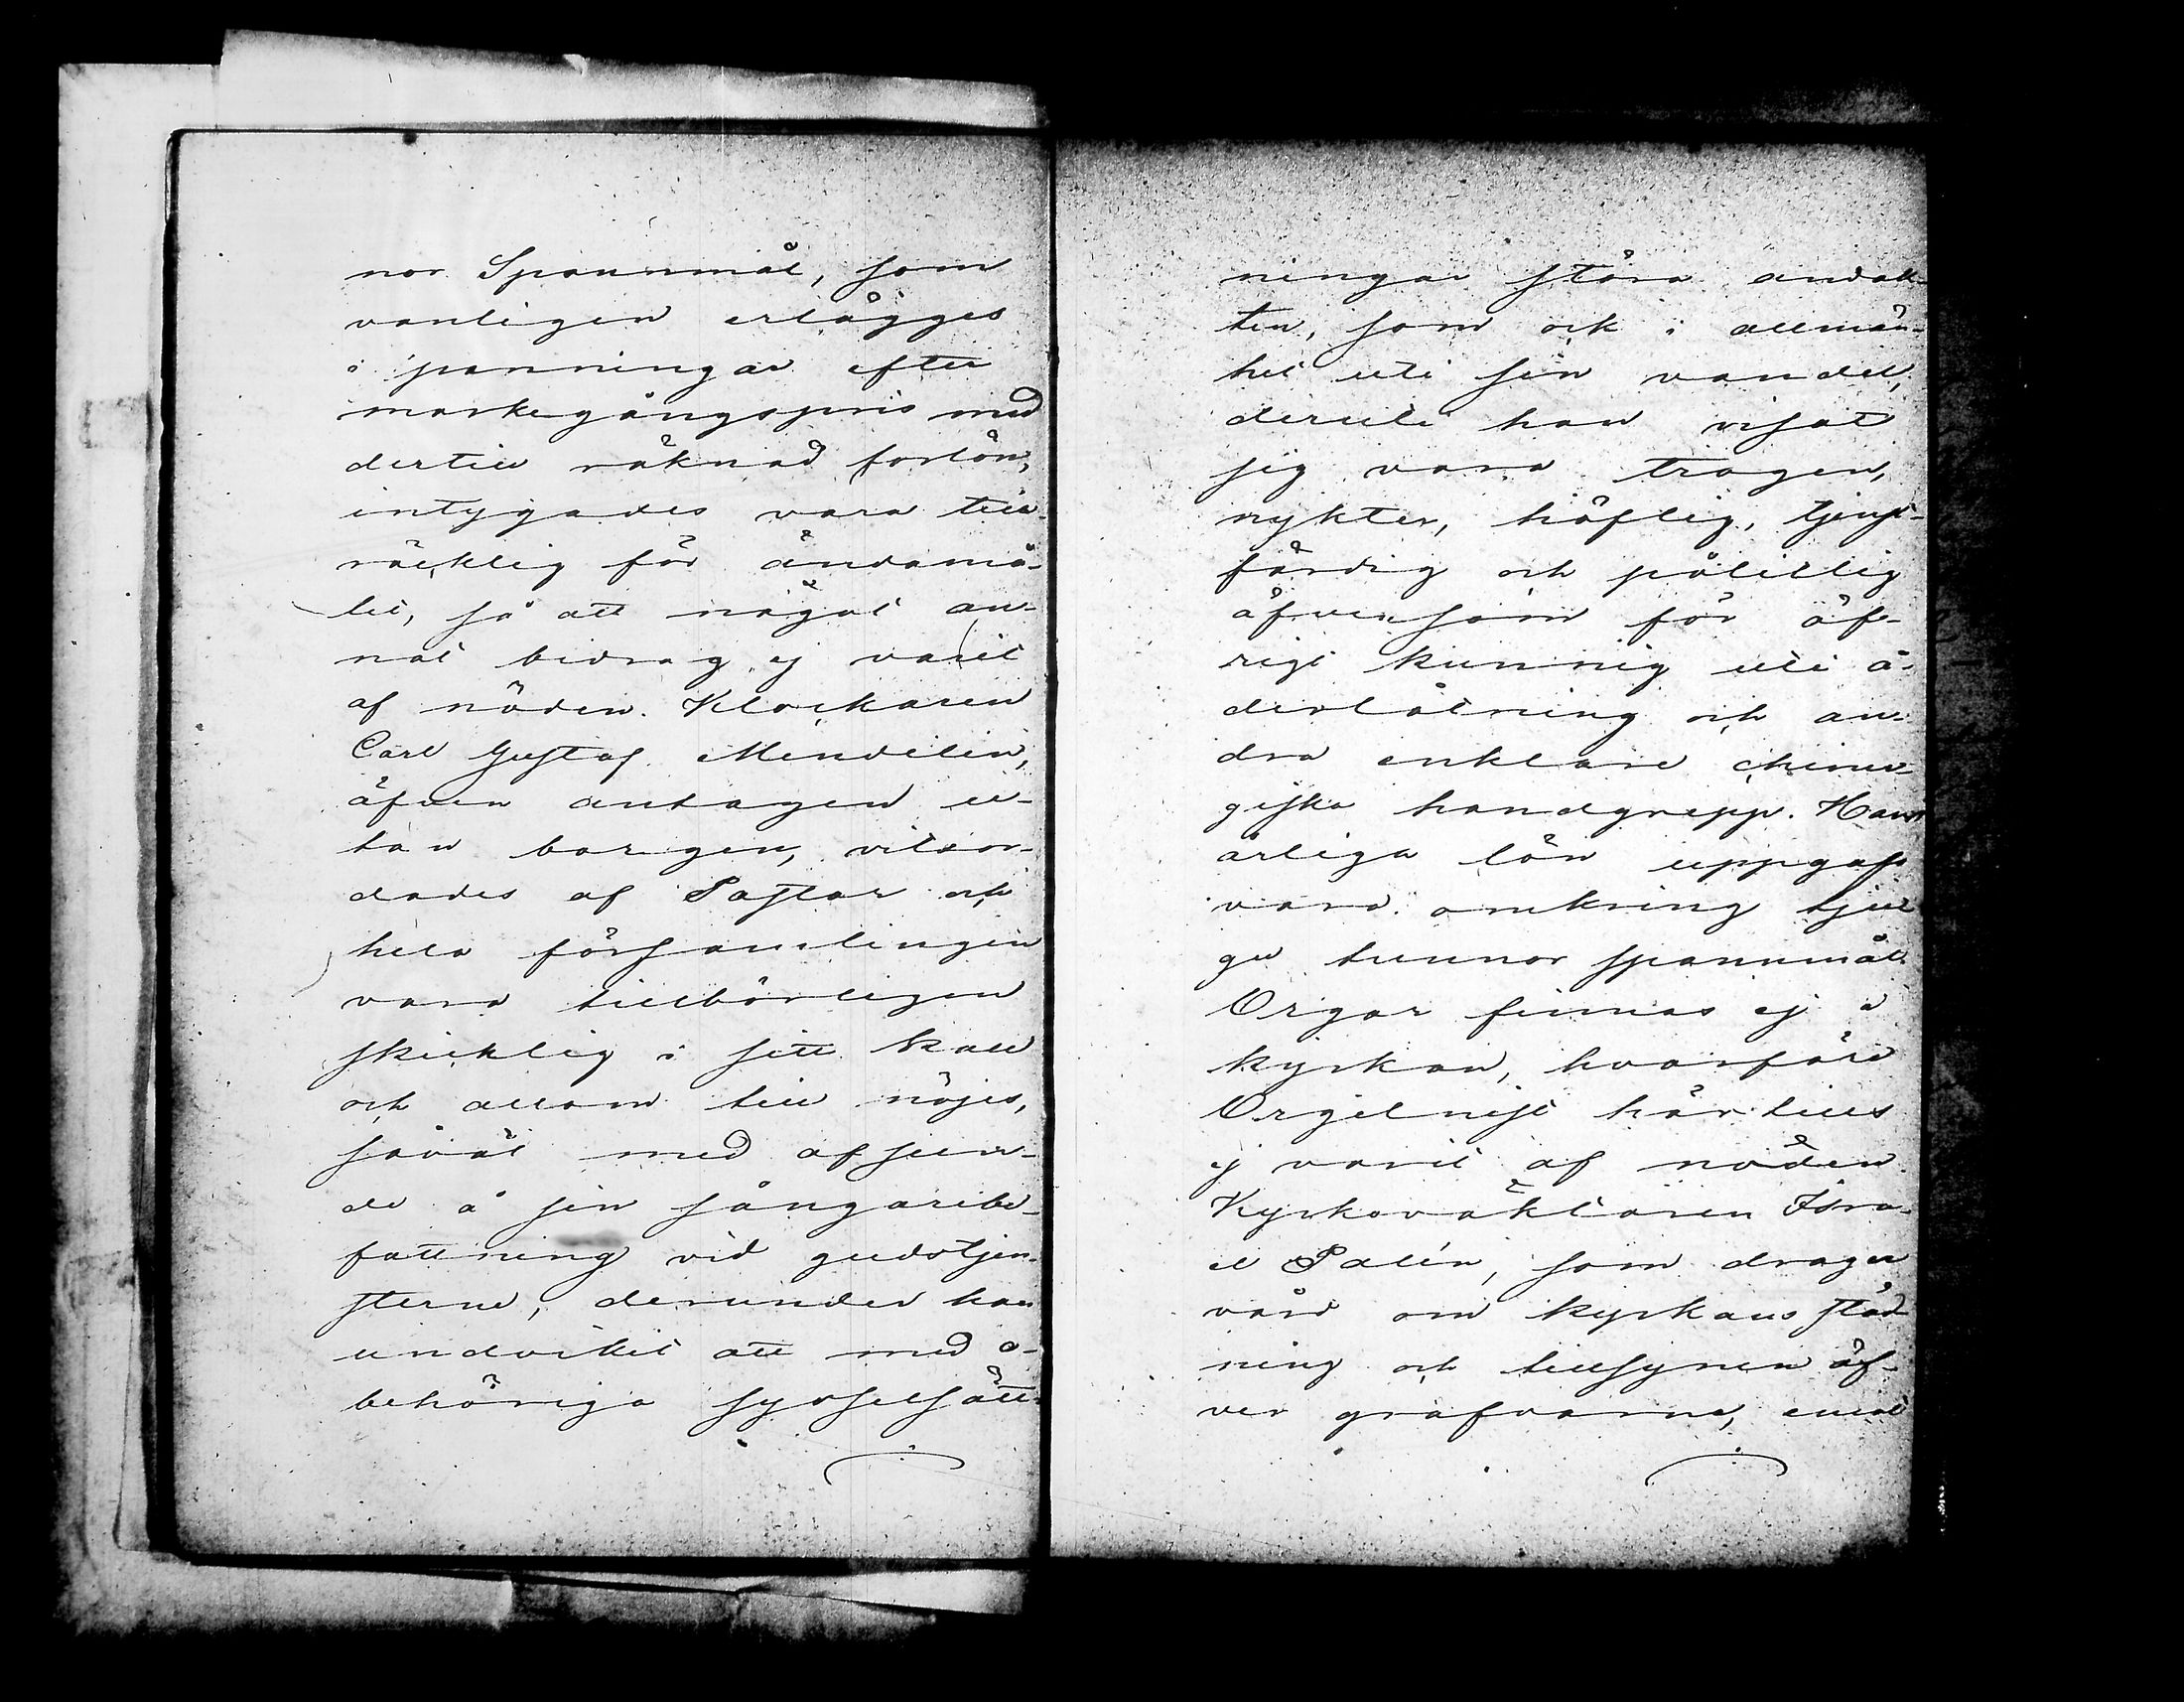 nor Spannmål, som
vanligen erlägges
i penningar efter
markegångspris med
dertill räknad forlön,
intygades vara till-
räcklig för ändamå-
let, så att något an-
nat bidrag ej varit
af nöden. Klockaren
Carl Gustaf Mendelin,
äfven antagen u-
tan borgen, vitsor-
dades af Pastor och
hela församlingen
vara tillbörligen
skicklig i sitt kall
och allom till nöjes,
såväl med afseen-
de å sin sångarebe-
fattning vid gudstjen-
sterne, derunder han
undvikit att med o-
behöriga sysselsätt-
ningar störa andak-
ten, som ock i allmän-
het uti sin vandel,
deruti han visat
sig vara trogen,
nykter, höflig, tjenst-
färdig och pålitlig
äfvensom för öf-
rigt kunnig uti å-
derlåtning och an-
dra enklare chirur-
giska handgrepp. Hans
årliga lön uppgafs
vara omkring tju-
gu tunnor spannmål.
Orgor finnas ej i
kyrkan, hvarföre
Orgelnist härtills
ej varit af nöden.
Kyrkovaktaren Isra-
el Palén, som drager
vård om kyrkans städ-
ning och tillsynen öf-
ver grafvarne, emot